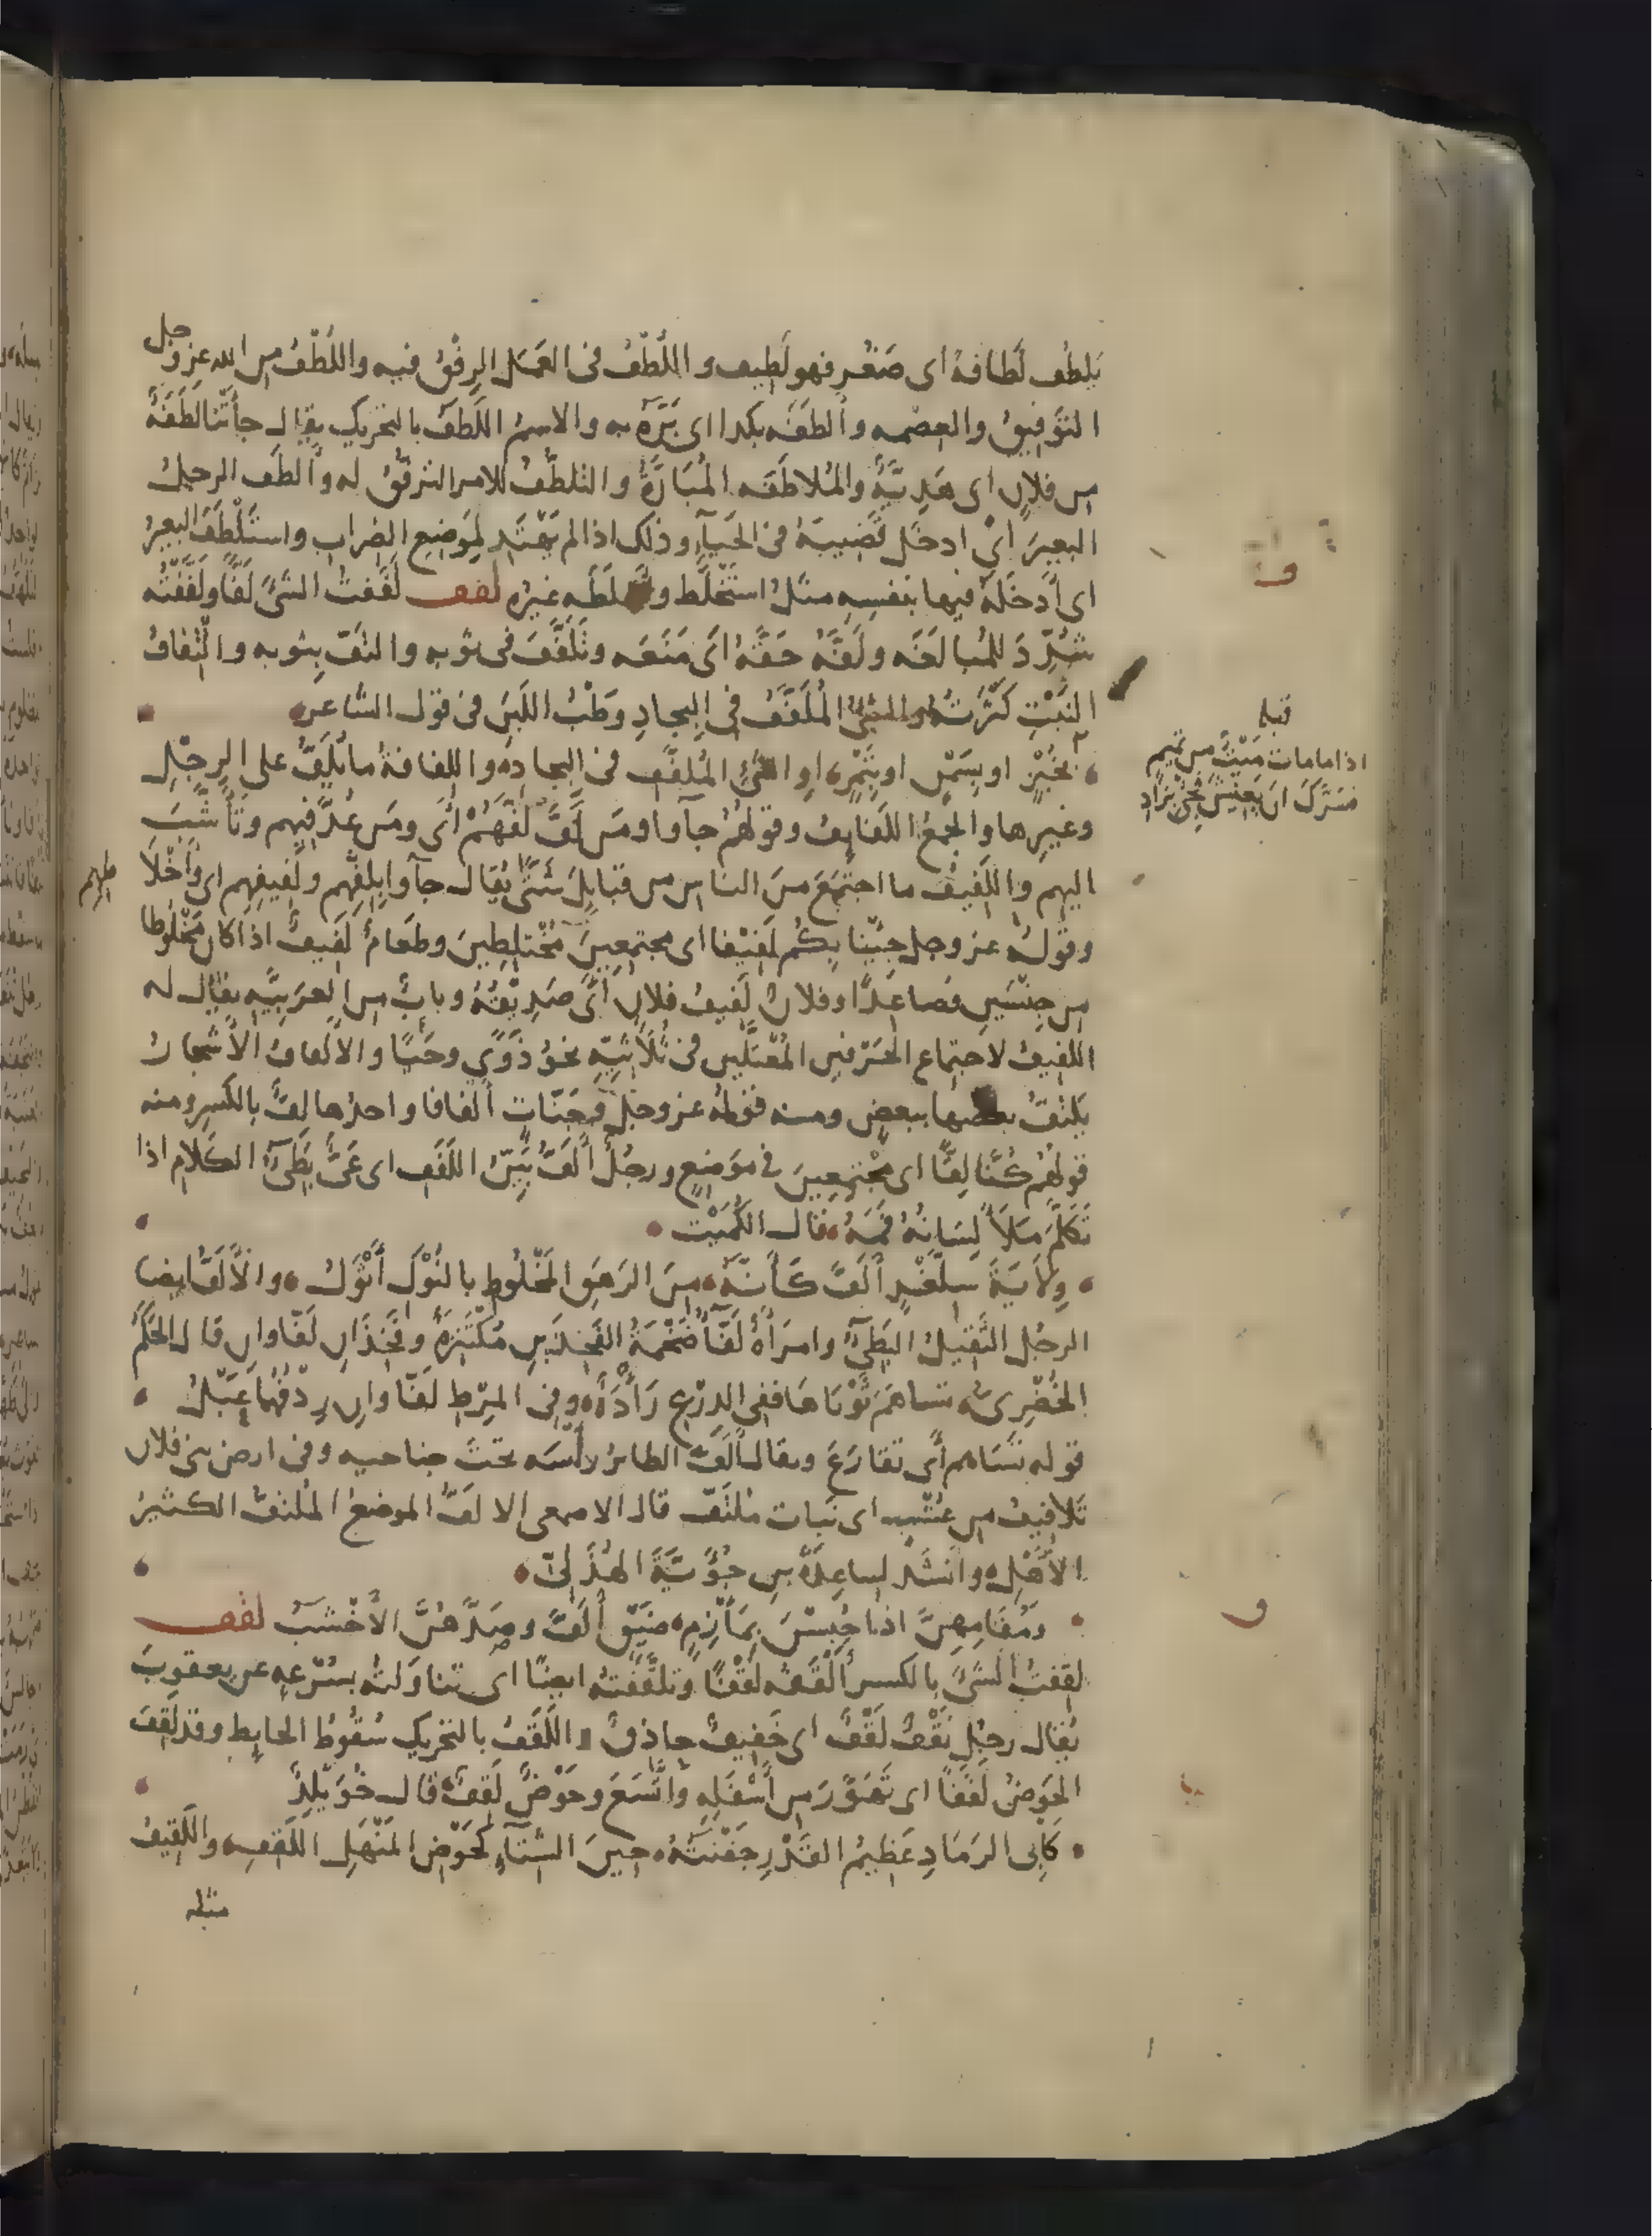 يلطُف لَطافةً اى صَغُر فهو لَطيف واللُطْفُ فى العَمَل الرِفْقُ فيه واللُطْفُ من الله عز وجل
التَوْفِيقُ والعِصْمه وأَلطَفَه بكذا اى بَرَّهُ به والاسمُ اللَطَفُ بالتحريك يقال جاَتْنا لَطَفَةٌ
من فلانٍ اى هَدِيَّةٌ والمُلاطَفَه المُبَارَّةُ والتلطُّفُ للامر الترفُّقُ له وأَلطَف الرجلُ
البعيرَ اىْ ادخَل قَضِيبَهُ فى الحَيَآءِ وذلك اذا لم يَهْتَدِ لِمَوْضِع الضِراب واستَلْطَفَ البعيرُ
اى أَدخَلَهُ فيها بنفسِهِ مثلُ استَخْلَط وأَخلَطَه غيرُه لفف لَفَفتُ الشَىَّ لَفًّا ولَفَّفْتُه
شُدِّدَ للمُبالَغَه ولَفَّهُ حَقَّهُ اَى مَنَعَه وتَلَفَّفَ فى ثوبِه والتفّ بِثوبه والْتِفافُ
النَبْتِ كَثْرَتُهُ والشئُ المُلَفَّفُ فى البِجادِ وَطْبُ اللَبَنِ فى قول الشَّاعر
بخُبْزٍ او بسَمْنٍ او بِتَمْرٍ او الشئِ المُلفَّف فى البجادِ واللِفافةُ ما يُلَفُّ على الرِجْلِ
وغيرِها والجمعُ اللَفايِفُ وقولهُم جآوا ومَن لَفَّ لَفَّهُمْ أى ومَن عُدَّ فيهم وتَأَشَّبَ
اليهم واللَفِيفُ ما اجتَمَعَ منَ الناسِ من قبايلَ شَتَّى يُقال جآوا بِلَفِّهم ولَفِيفِهم اى وأَخْلاَ
طهم
وقولُه عز وجل جِيْنا بِكُم لَفِيْفا اى مجتمعِينَ مُخْتلِطِينَ وطَعَامٌ لَفِيفٌ اذا كان مَخْلُوطا
من جِنْسَينِ فصاعِدًا وفلانٌ لَفيفُ فلانٍ اَى صَدِيْقُهُ وبابٌ من العَرَبِيَّه يقال له
اللفيفُ لاجتماع الحَرْفينِ المُعْتَلَّينِ فى ثُلاَثِيِّهِ نحوُ ذَوَى وحَيِىَ والالْفافُ الاَشجارُ
يَلتفُّ بعضها ببعض ومنه قوله عز وجل وجَنّاتٍ أَلفافا واحدُها لِفٌّ بالكَسرِ ومنه
قولُهُم كُنَّا لِفًّا اى مُجْتمِعِينَ فى مَوْضِعٍ ورجُلٌ أَلَفُّ بَيِّنُ اللَفَفِ اى عَىٌّ بَطِىُٔ الكَلامِ اذا
تَكَلَّمَ مَلاَ لِسَانُهُ فَمَهُ قال الكُمَيْت
وِلاَيَةُ سِلَّغْدٍ أَلَفَّ كَأَنَّهُ مِنَ الرَهَقِ المَخْلُوطِ بالنُوْكِ أَثْوَلُ والاَلَفُّ ايضا
الرجُل الثَقِيلُ البَطِىُٔ وامرَأةٌ لَفّآُ ضَخْمَةُ الفَخِذَينِ مُكْتَنِزَةٌ وفَخِذَانِ لَفّاوانِ قال الحَكَمُ
الخُضْرِىُّ تساهَمَ ثَوْبَاها ففى الدِرْعِ رَأْدَةٌ وفى المِرْطِ لَفّاوانِ رِدْفُهُما عَبْلُ
قوله تَسَاهم اَى تقارَعَ ويقال أَلَفَّ الطائرُ راْسَه تحتَ جناحيه وفى ارض بنى فلان
تَلافِيفُ من عُشْبٍ اى نَبات مُلتَفّ قال الاصمعى الالَفُّ الموضعُ المُلتفُّ الكثيرُ
الاَهْلِ وانشَدَ لساعِدَةَ بنِ جُؤَيَّةَ الهُذَلىّ
ومُقامِهِنَّ اذا حُبِسْنَ بِمَأْزِمٍ ضَيْقٍ أَلَفَّ وصَدَّهُنَّ الاَخْشَبُ لقف
لقِفتُ الشَىَّ بالكسر أَلْقَفُه لَقْفًا وتلقَّفْتهُ ايضًا اى تناوَلتُه بسُرْعهٍ عن يعقوبَ
يُقال رجُل ثَقْفٌ لَقْفٌ اى خَفيفٌ حاذِقٌ واللَقَفُ بالتحريك سُقُوطُ الحايِط وقد لَقِفَ
الحَوضُ لَقَفًا اى تَهَوَّرَ من أَسْفَلِهِ وأَتَّسَعَ وحَوْضٌ لَقِفٌ قال خُوَيْلِدٌ
كابى الرَمَادِ عَظِيمُ القَدْرِ جَفْنَتُهُ حِينَ الشِتَآءِ كَحَوْضِ المَنْهَلِ اللَقِفِ واللَقِيفُ
مثله
ف
قبله
اذا ما مات مَيْتٌ من تميم
فسَرَّكَ ان يَعِيشَ فَجِئْ بزَادِ
ف